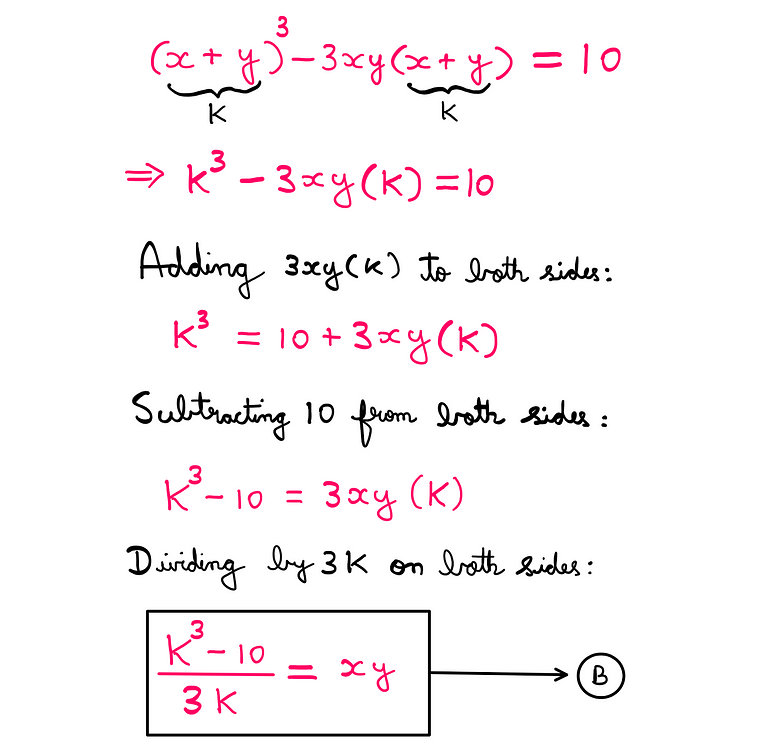 (x + y)³ – 3xy(x + y) = 10
K K
⇒ K³ – 3xy(K) = 10
Adding 3xy(K) to both sides:
K³ = 10 + 3xy(K)
Subtracting 10 from both sides:
K³ – 10 = 3xy (K)
Dividing by 3K on both sides:
K³ – 10 / 3K = xy → B